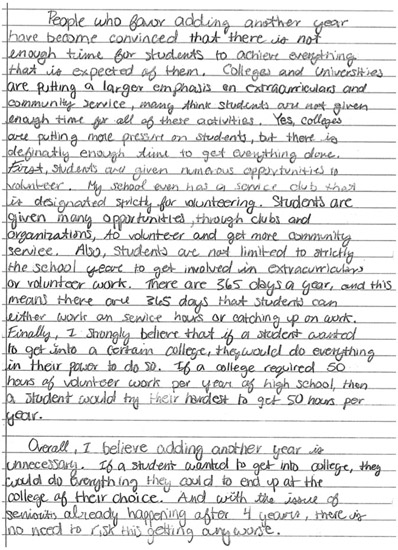 People who favor adding another year
have become convinced that there is not
enough time for students to achieve everything
that is expected of them. Colleges and Universities
are putting a larger emphasis on extracurriculars and
community service, many think students are not given
enough time for all of these activities. Yes, colleges
are putting more pressure on students, but there is
definatly enough time to get everything done.
First, students are given numerous opportunities to
volunteer. My school even has a service club that
is designated strictly for volunteering. Students are
given many opportunities, through clubs and
organizations, to volunteer and get more community
service. Also, students are not limited to strictly
the school year to get involved in extracurriculars
or volunteer work. There are 365 days a year, and this
means there are 365 days that students can
either work on service hours or catching up on work.
Finally, I strongly believe that if a student wanted
to get into a certain college, they would do everything
in their power to do so. If a college required 50
hours of volunteer work per year of high school, then
a student would try their hardest to get 50 hours per
year.
Overall, I believe adding another year is
unnecessary. If a student wanted to get into college, they
would do everything they could to end up at the
college of their choice. And with the issue of
senioritis already happening after 4 years, there is
no need to risk this getting any worse.